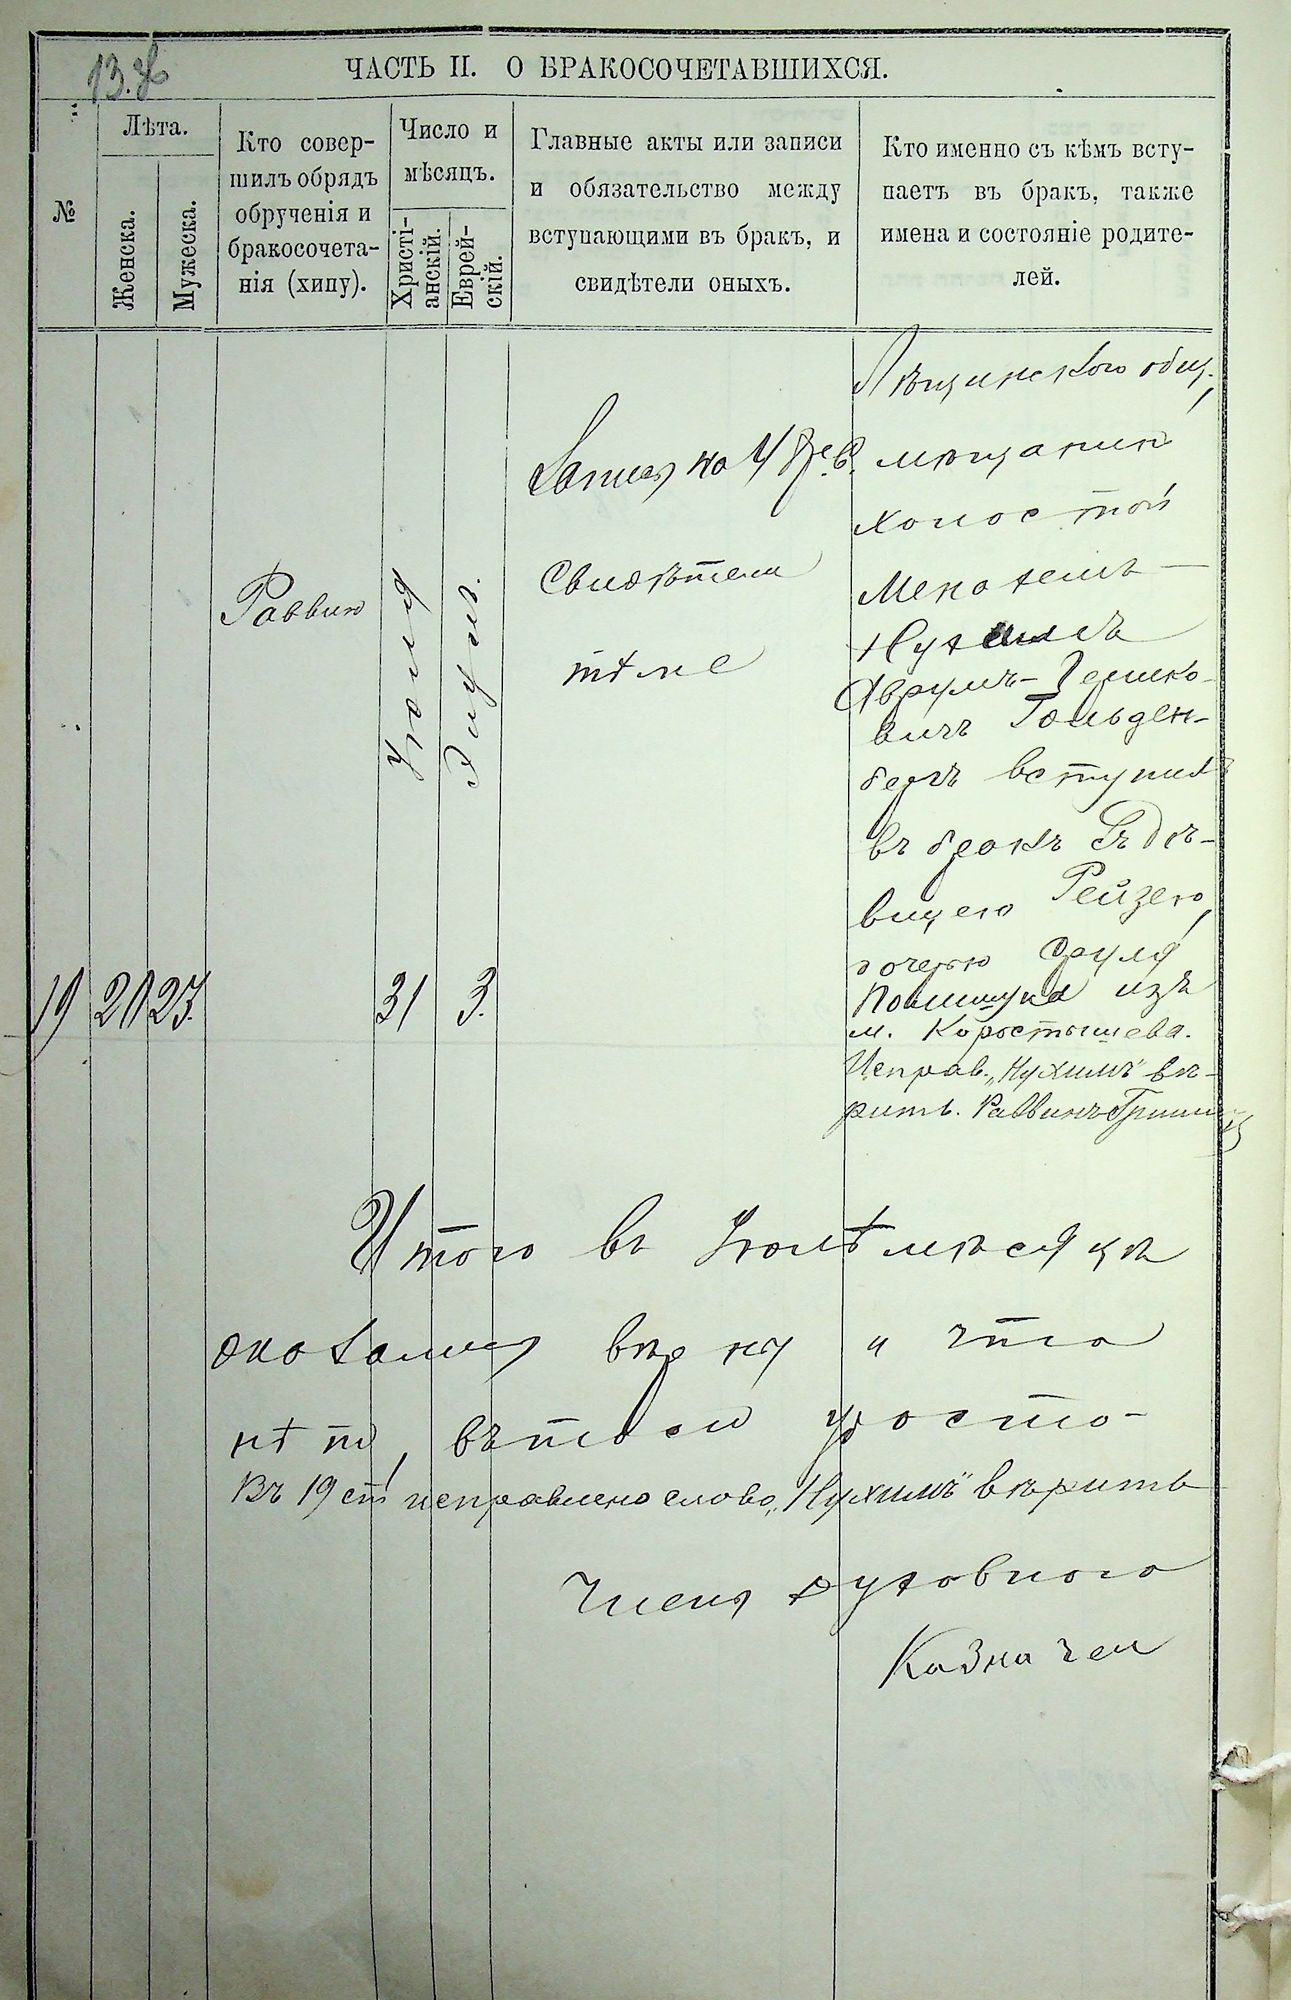 13.
ЧАСТЬ II. О БРАКОСОЧЕТАВШИХСЯ.
№
Лѣта.
Женска.
Мужеска.
Кто совер-
шилъ обрядъ
обрученія и
бракосочета-
нія (хипу).
Число и
мѣсяцъ.
Христі-
анскій.
Еврей-
скій.
Главные акты или записи
и обязательство между
вступающими въ бракъ, и
свидѣтели оныхъ.
Кто именно съ кѣмъ всту-
паетъ въ бракъ, также
имена и состояніе родите-
лей.
19
20
23.
Раввин
Іюля
31
Элулъ.
3.
Запись на 48 р. с.
Свидѣтели
тѣ же
общ.
мѣщанин
холостой
Менахемъ-
Нухимъ
Аврумъ-Гершко-
вичъ Гольден-
бергъ вступилъ
въ бракъ съ дѣ-
вицею Рейзею,
дочерью Сруля
Полищука изъ
м. Коростышева.
Исправ. „Нухимъ" вѣ-
рить. Раввинъ
Итого въ Іюлѣ мѣсяцѣ
оказалось вѣрну и что
нѣтъ, въ том
Въ 19 ст исправлено слово „Нухимъ" вѣрить
Члены духовного
Казначеи